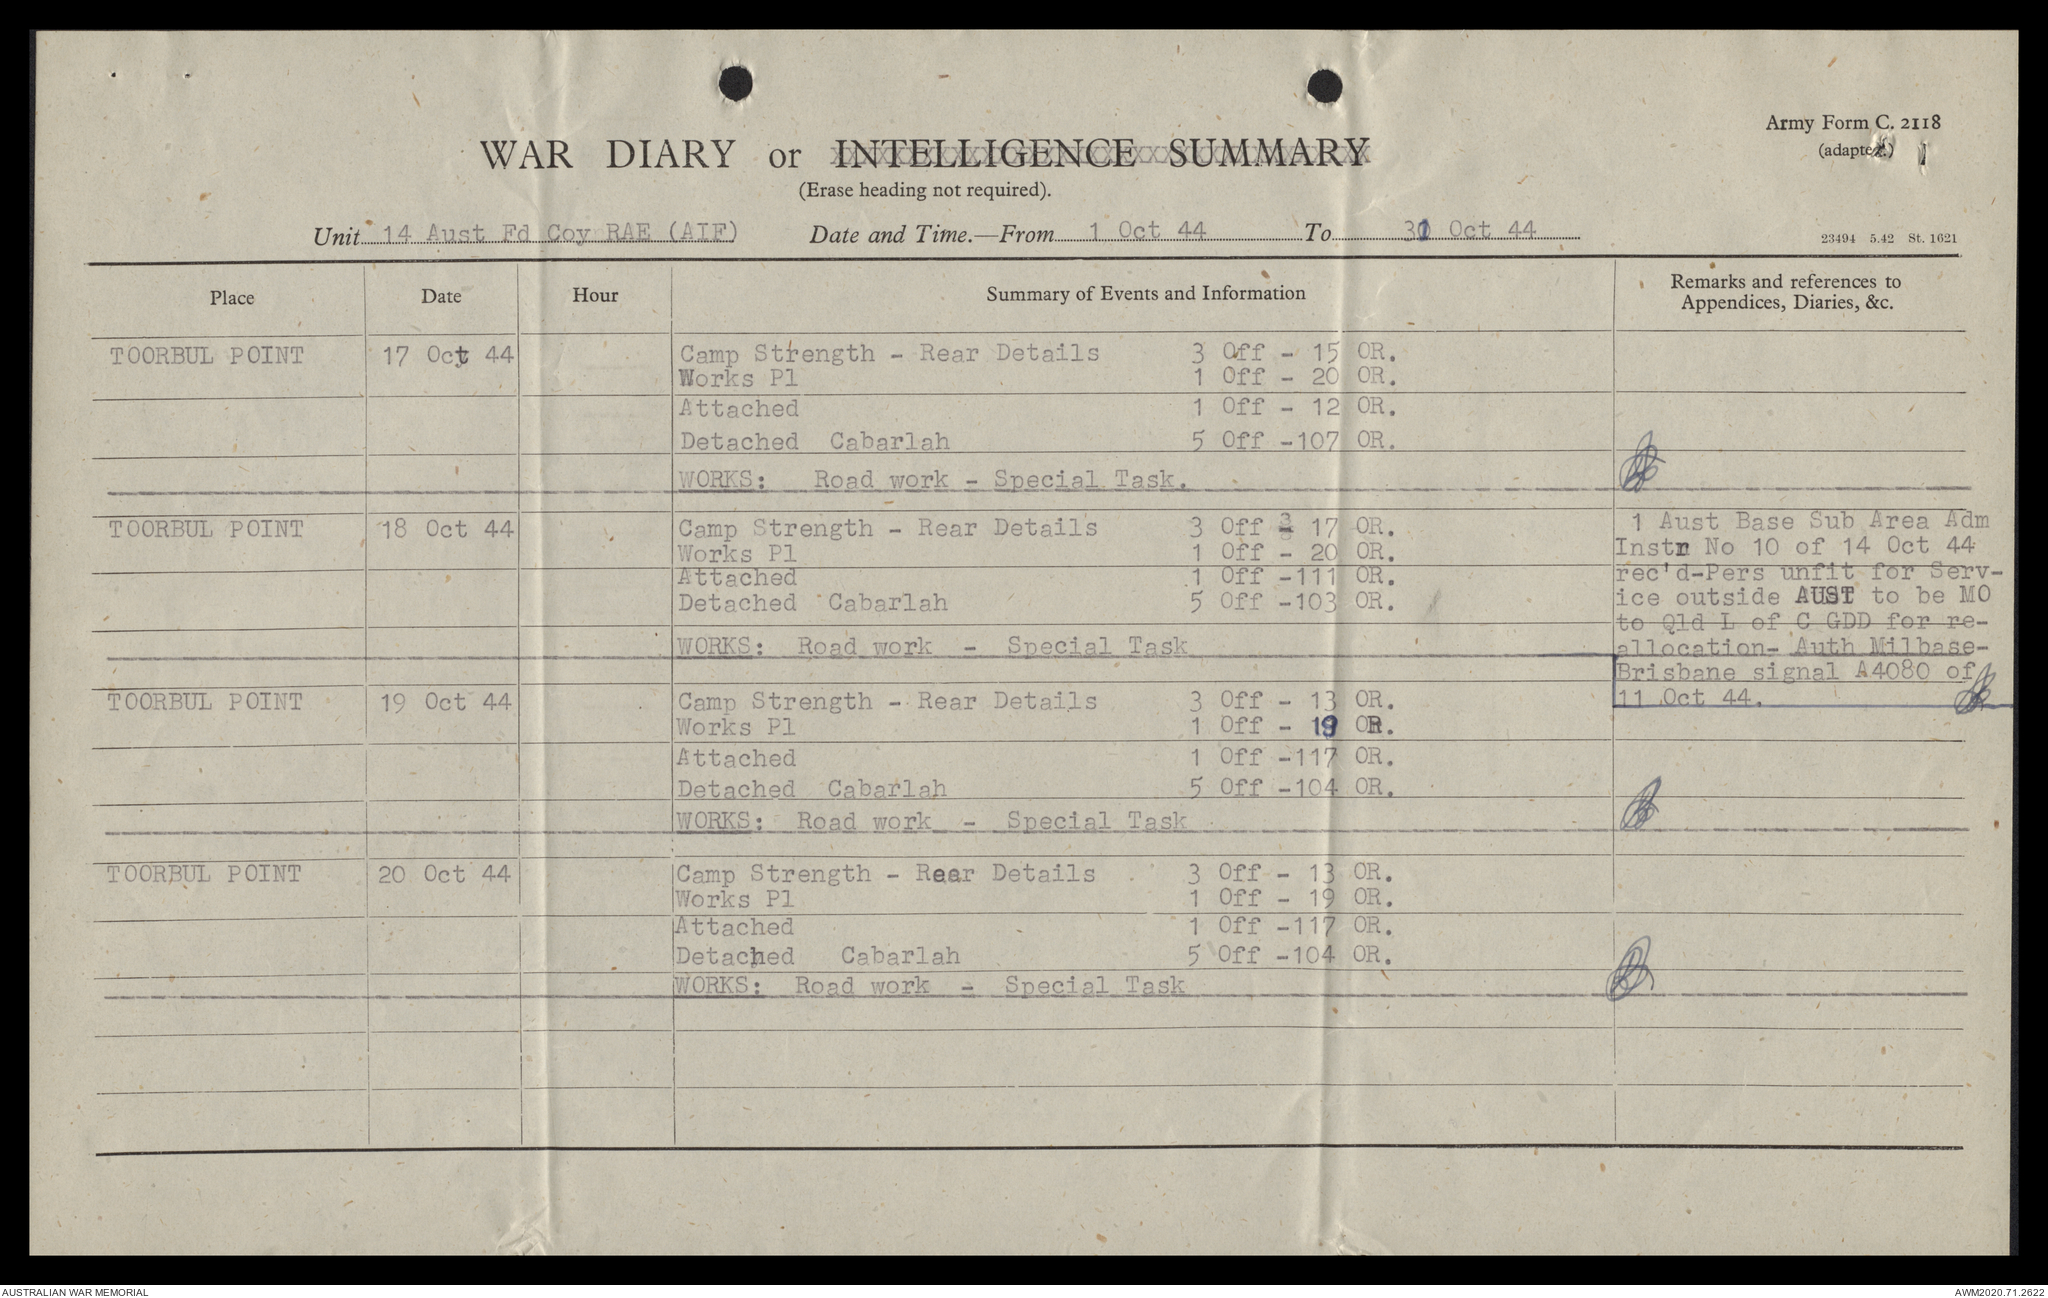 Army Form C. 2118
(adapted.)
WAR DIARY or INTELLIGENCE SUMMARY
(Erase heading not required).
Unit 14 Aust Fd Coy RAE (AIF) Date and Time.—From 1 Oct 44 To 31 Oct 44
23494 5.42 St. 1621
Place Date Hour Summary of Events and Information Remarks and references to
Appendices, Diaries, &c.
TOORBUL POINT 17 Oct 44 Camp Strength - Rear Details 3 Off - 15 OR.
Works Pl 1 Off - 20 OR.
Attached 1 Off - 12 OR.
Detached Cabarlah 5 Off -107 OR.
WORKS: Road work - Special Task.
TOORBUL POINT 18 Oct 44 Camp Strength - Rear Details 3 Off - 17 OR.
Works Pl 1 Off - 20 OR.
Attached 1 Off -111 OR.
Detached Cabarlah 5 Off -103 OR.
WORKS: Road work - Special Task
1 Aust Base Sub Area Adm
Instr No 10 of 14 Oct 44
rec'd-Pers unfit for Serv-
ice outside AUST to be MO
to Qld L of C GDD for re-
allocation- Auth Milbase-
Brisbane signal A4080 of
11 Oct 44.
TOORBUL POINT 19 Oct 44 Camp Strength - Rear Details 3 Off - 13 OR.
Works Pl 1 Off - 19 OR.
Attached 1 Off -117 OR.
Detached Cabarlah 5 Off -104 OR.
WORKS: Road work - Special Task
TOORBUL POINT 20 Oct 44 Camp Strength - Rear Details 3 Off - 13 OR.
Works Pl 1 Off - 19 OR.
Attached 1 Off -117 OR.
Detached Cabarlah 5 Off -104 OR.
WORKS: Road work - Special Task
AUSTRALIAN WAR MEMORIAL AWM2020.71.2622